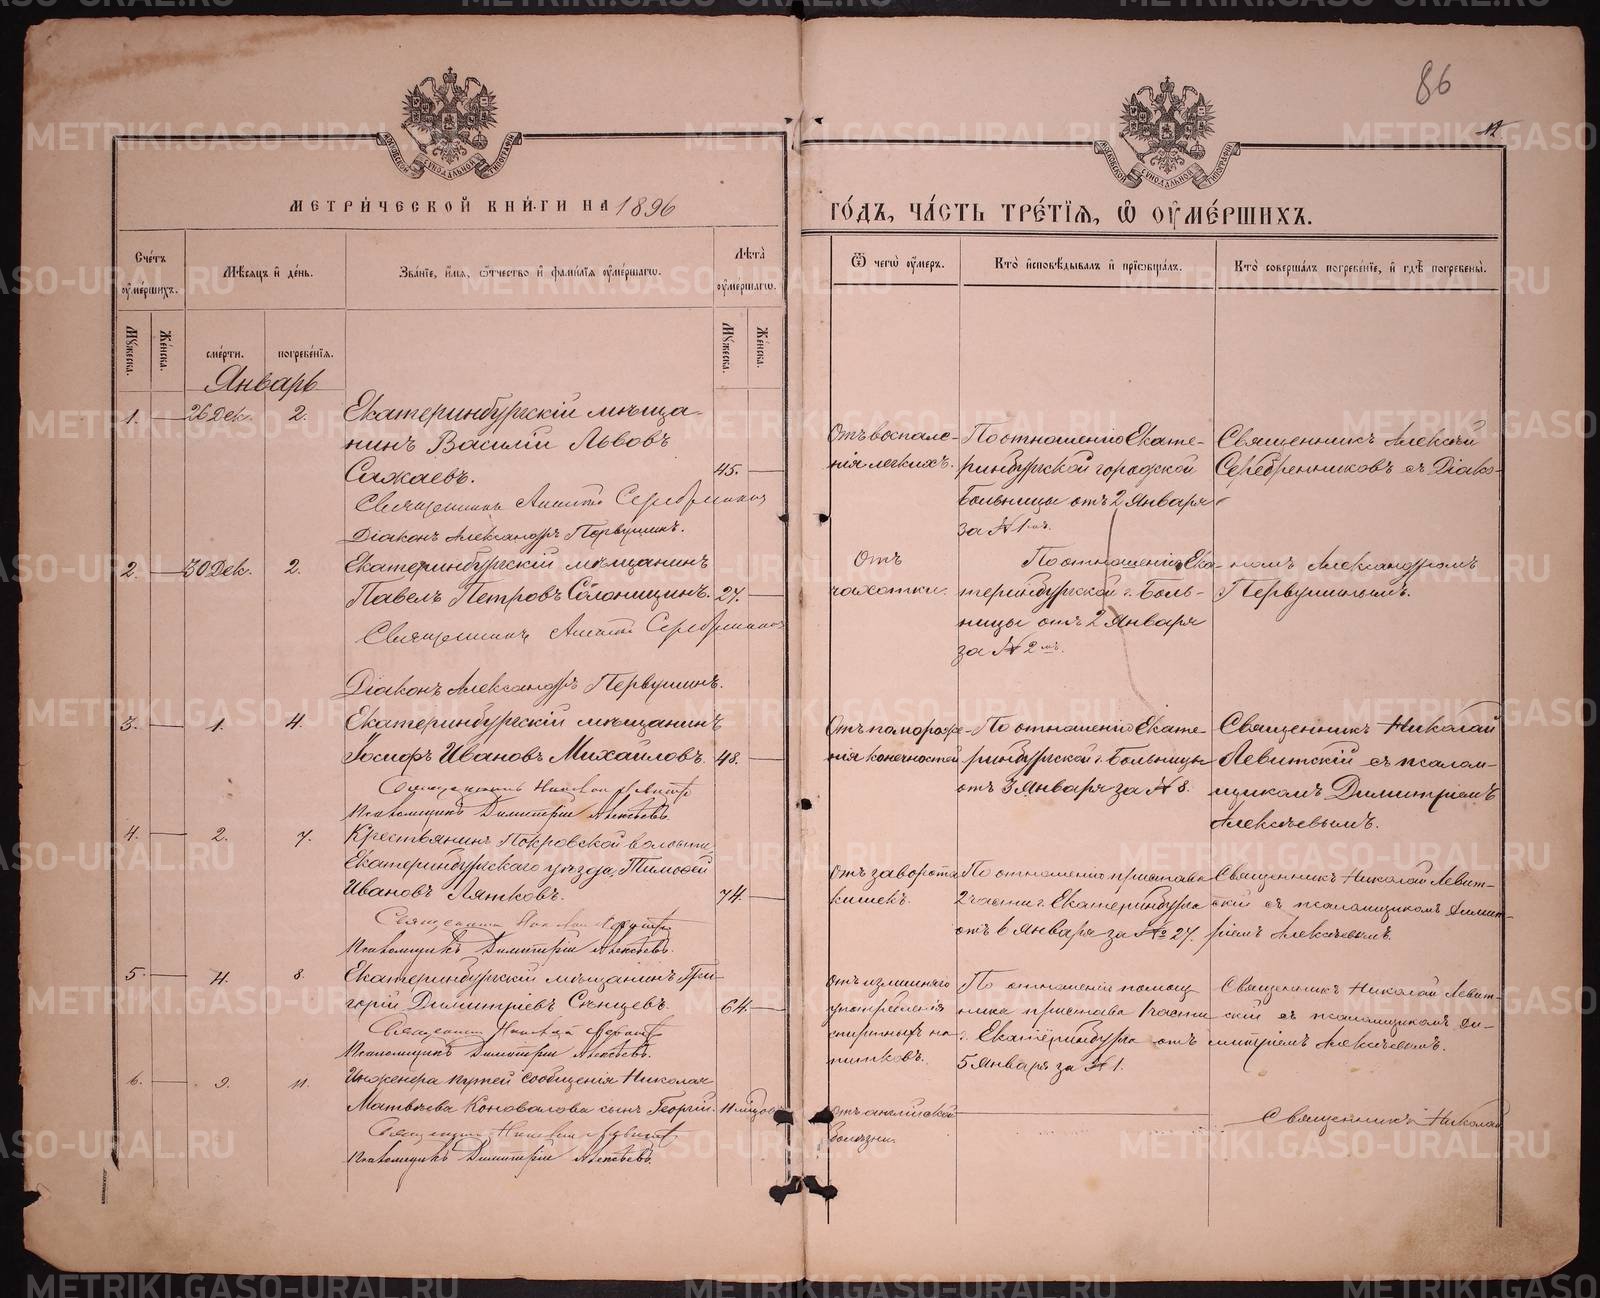 86
МОСКОВСКОЙ СѴНОДАЛЬНОЙ ТИПОГРАФІИ
МОСКОВСКОЙ СѴНОДАЛЬНОЙ ТИПОГРАФІИ
МЕТРИ́ЧЕСКОЙ КНИ́ГИ НА 1896
ГО́ДЪ, ЧА́СТЬ ТРЕ́ТІѦ, Ѡ ОУМЕ́РШИХЪ.
Сче́тъ оумершихъ.
Мѣсѧцъ и де́нь.
Зва́нїе, и́мѧ, ѻтчество и фами́лїѧ оуме́ршагѡ.
Лѣта̀ оуме́ршагѡ.
Ѿ чегѡ̀ оумеръ.
Кто̀ исповѣдывалъ и прїѡбща́лъ.
Кто̀ соверша́лъ погребе́нїе, и гдѣ̀ погребены̀.
Мужеска.
Же́нска.
сме́рти.
погребе́нїѧ.
Мужеска.
Же́нска.
Январь
1.
26 Дек.
2.
Екатеринбургскій мѣща-
нинъ Василій Львовъ
Сажаевъ.
45.
Священникъ Алексій Серебренниковъ
Діаконъ Александръ Первушинъ.
Отъ воспале-
нія легкихъ.
По отношенію Екате-
ринбургской городской
больницы отъ 2 Января
за № 1мъ.
Священникъ Алексій
Серебренниковъ съ Діако-
2.
30 Дек.
2.
Екатеринбургскій мѣщанинъ
Павелъ Петровъ Солонищинъ.
27.
Священникъ Алексій Серебренниковъ
Діаконъ Александръ Первушинъ.
Отъ
чахотки.
По отношенію Ека-
теринбургской г. Боль-
ницы отъ 2 Января
за № 2мъ.
номъ Александромъ
Первушинымъ.
3.
1.
4.
Екатеринбургскій мѣщанинъ
Іосифъ Ивановъ Михайловъ.
48.
Священникъ Николай Левитскій
Псаломщикъ Димитрій Алексѣевъ.
Отъ помороже-
нія конечностей
По отношенію Екате-
ринбургской г. Больницы
отъ 3 Января за № 8.
Священникъ Николай
Левитскій съ псалом-
щикомъ Димитріемъ
Алексѣевымъ.
4.
2.
7.
Крестьянинъ Покровской волости,
Екатеринбургскаго уѣзда, Тимофей
Ивановъ Лятковъ.
74.
Священникъ Николай Левитскій
Псаломщикъ Димитрій Алексѣевъ.
Отъ заворота
кишекъ.
По отношенію пристава
2 части г. Екатеринбурга
отъ 6 Января за № 27.
Священникъ Николай Левит-
скій съ псаломщикомъ Димит-
ріемъ Алексѣевымъ.
5.
4.
8.
Екатеринбургскій мѣщанинъ Гри-
горій Димитріевъ Сѣнцевъ.
64.
Священникъ Николай Левитскій
Псаломщикъ Димитрій Алексѣевъ.
Отъ излишняго
употребленія
спиртныхъ на-
питковъ.
По отношенію помощ
ника пристава 1 части
г. Екатеринбурга отъ
5 Января за № 1.
Священникъ Николай Левит-
скій съ псаломщикомъ Ди-
митріемъ Алексѣевымъ.
6.
9.
11.
Инженера путей сообщенія Николая
Матвѣева Коновалова сынъ Георгій.
Священникъ Николай Левитскій
Псаломщикъ Димитрій Алексѣевъ.
Отъ англійской
болѣзни.
Священникъ Николай
METRIKI.GASO-URAL.RU